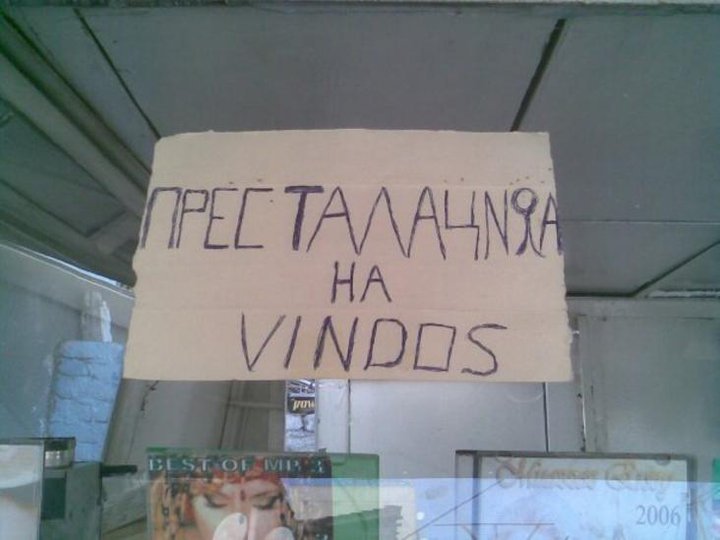 ПРЕСТАЛАЦNЯА
НА
VINDOS
BEST OF MP3
2006